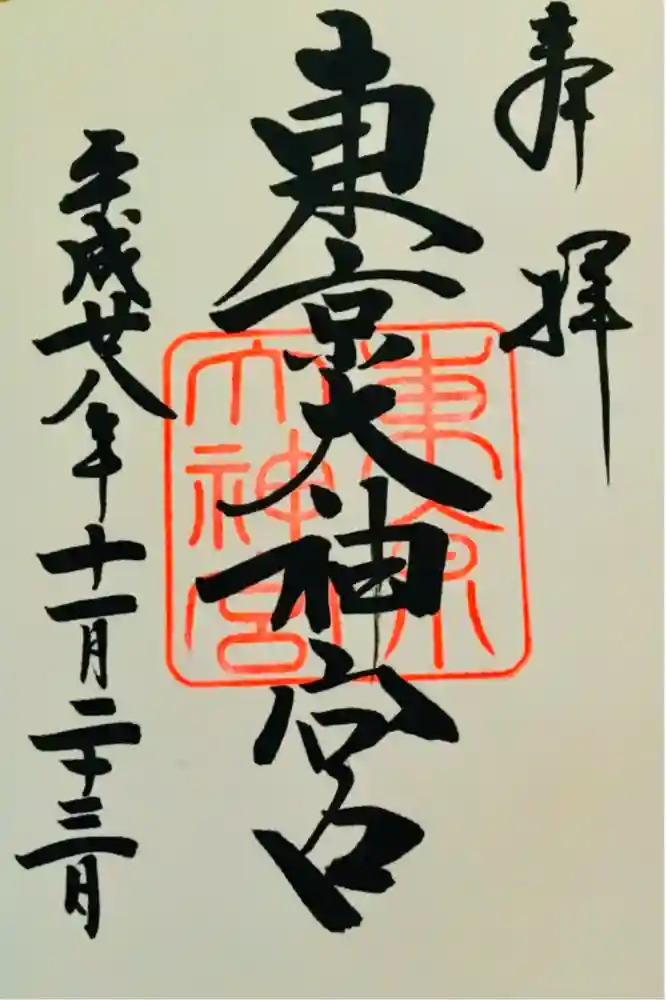 奉拝
東京大神宮
平成廿八年十一月二十三日
東京
大神宮